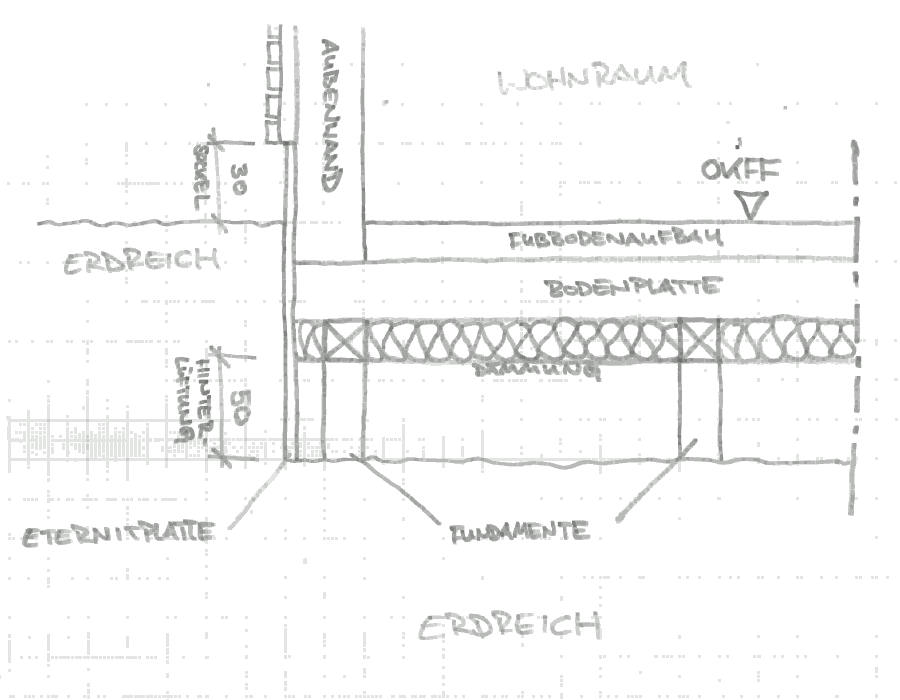 AUßENWAND
WOHNRAUM
SOCKEL
30
OKFF
FUßBODENAUFBAU
ERDREICH
BODENPLATTE
DÄMMUNG
HINTER-
LÜFTUNG
50
ETERNITPLATTE
FUNDAMENTE
ERDREICH